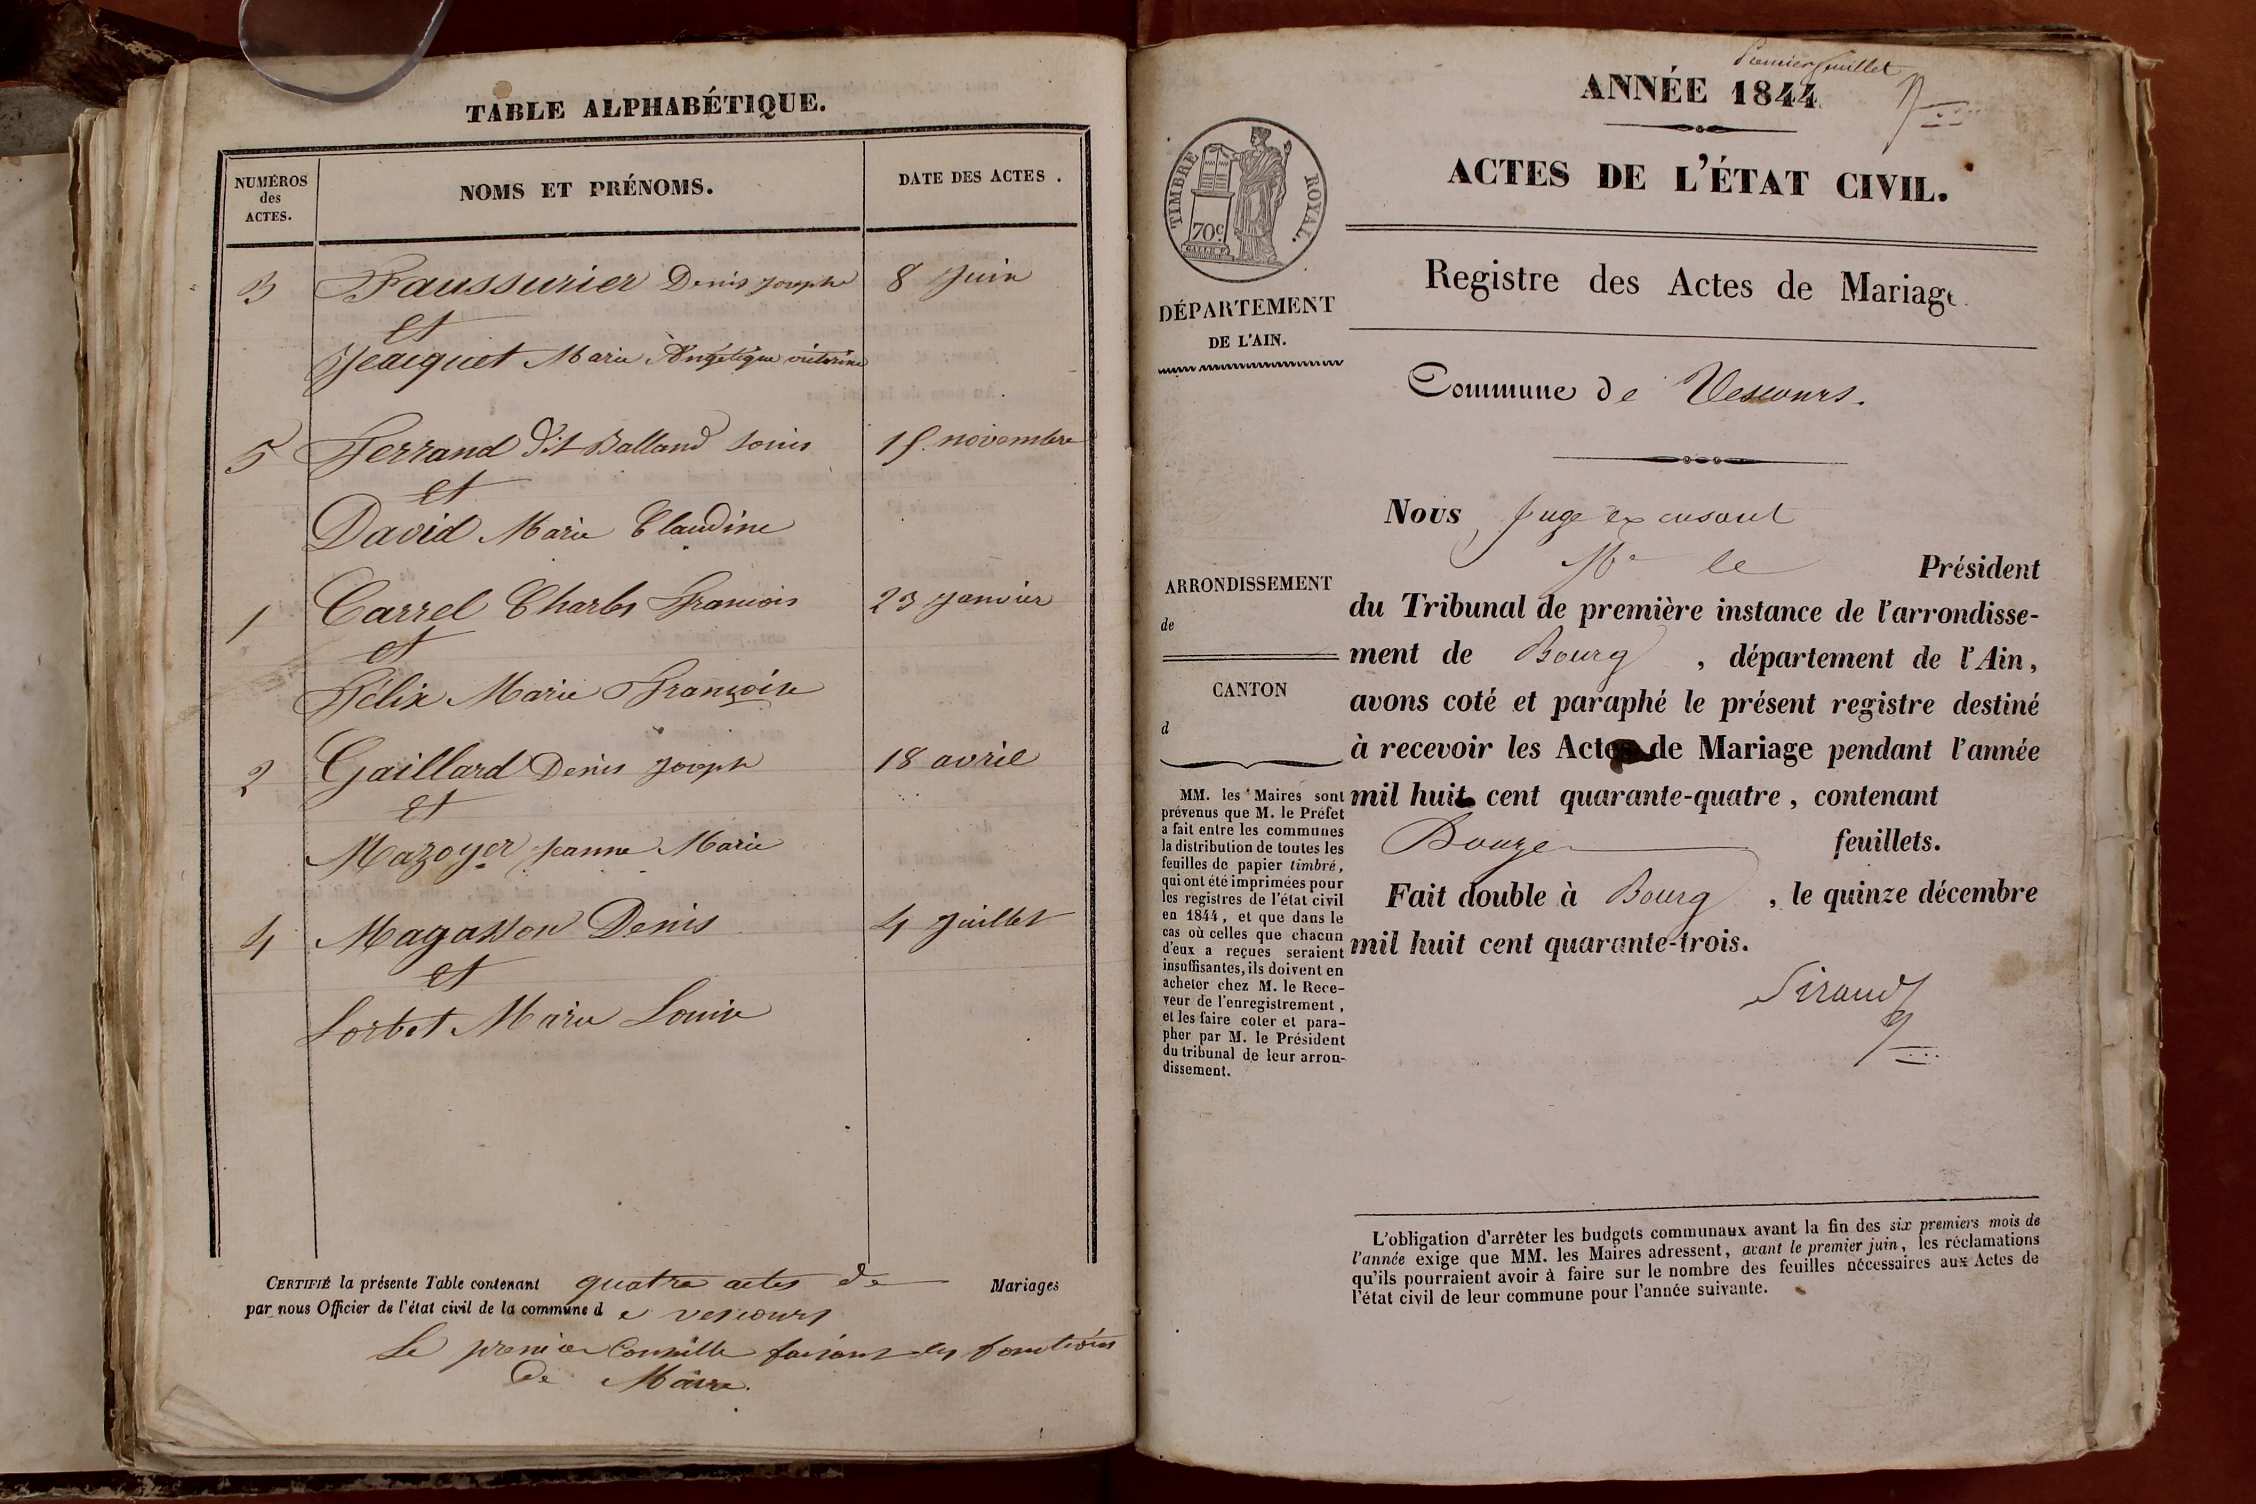 TABLE ALPHABÉTIQUE.
NUMÉROS
des
ACTES.
NOMS ET PRÉNOMS.
DATE DES ACTES.
3 Faussurier Denis Joseph 8 Juin
et
Jeacquet Marie Angélique victorine
5 Ferrand dit Balland Louis 15 novembre
et
David Marie Claudine
1 Carrel Charles François 23 janvier
et
Félix Marie Françoise
2 Gaillard Denis Joseph 18 avril
et
Mazoyer Jeanne Marie
4 Magasson Denis 4 Juillet
et
Lorbet Marie Louise
CERTIFIÉ la présente Table contenant quatre actes de Mariages
par nous Officier de l'état civil de la commune d e vescours
Le premier Conseille faisant les fonctions
de Maire.
Premier feuillet
ANNÉE 1844
ACTES DE L'ÉTAT CIVIL.
TIMBRE ROYAL.
70c
Registre des Actes de Mariage
DÉPARTEMENT
DE L'AIN.
Commune de Vescours.
Nous Juge ex cusant
Mr le Président
ARRONDISSEMENT
de
CANTON
d
du Tribunal de première instance de l'arrondisse-
ment de Bourg, département de l'Ain,
avons coté et paraphé le présent registre destiné
à recevoir les Actes de Mariage pendant l'année
mil huit cent quarante-quatre, contenant
Douze feuillets.
Fait double à Bourg, le quinze décembre
mil huit cent quarante-trois.
Siraud
MM. les Maires sont
prévenus que M. le Préfet
a fait entre les communes
la distribution de toutes les
feuilles de papier timbré,
qui ont été imprimées pour
les registres de l'état civil
en 1844, et que dans le
cas où celles que chacun
d'eux a reçues seraient
insuffisantes, ils doivent en
acheter chez M. le Rece-
veur de l'enregistrement,
et les faire coter et para-
pher par M. le Président
du tribunal de leur arron-
dissement.
L'obligation d'arrêter les budgets communaux avant la fin des six premiers mois de
l'année exige que MM. les Maires adressent, avant le premier juin, les réclamations
qu'ils pourraient avoir à faire sur le nombre des feuilles nécessaires aux Actes de
l'état civil de leur commune pour l'année suivante.